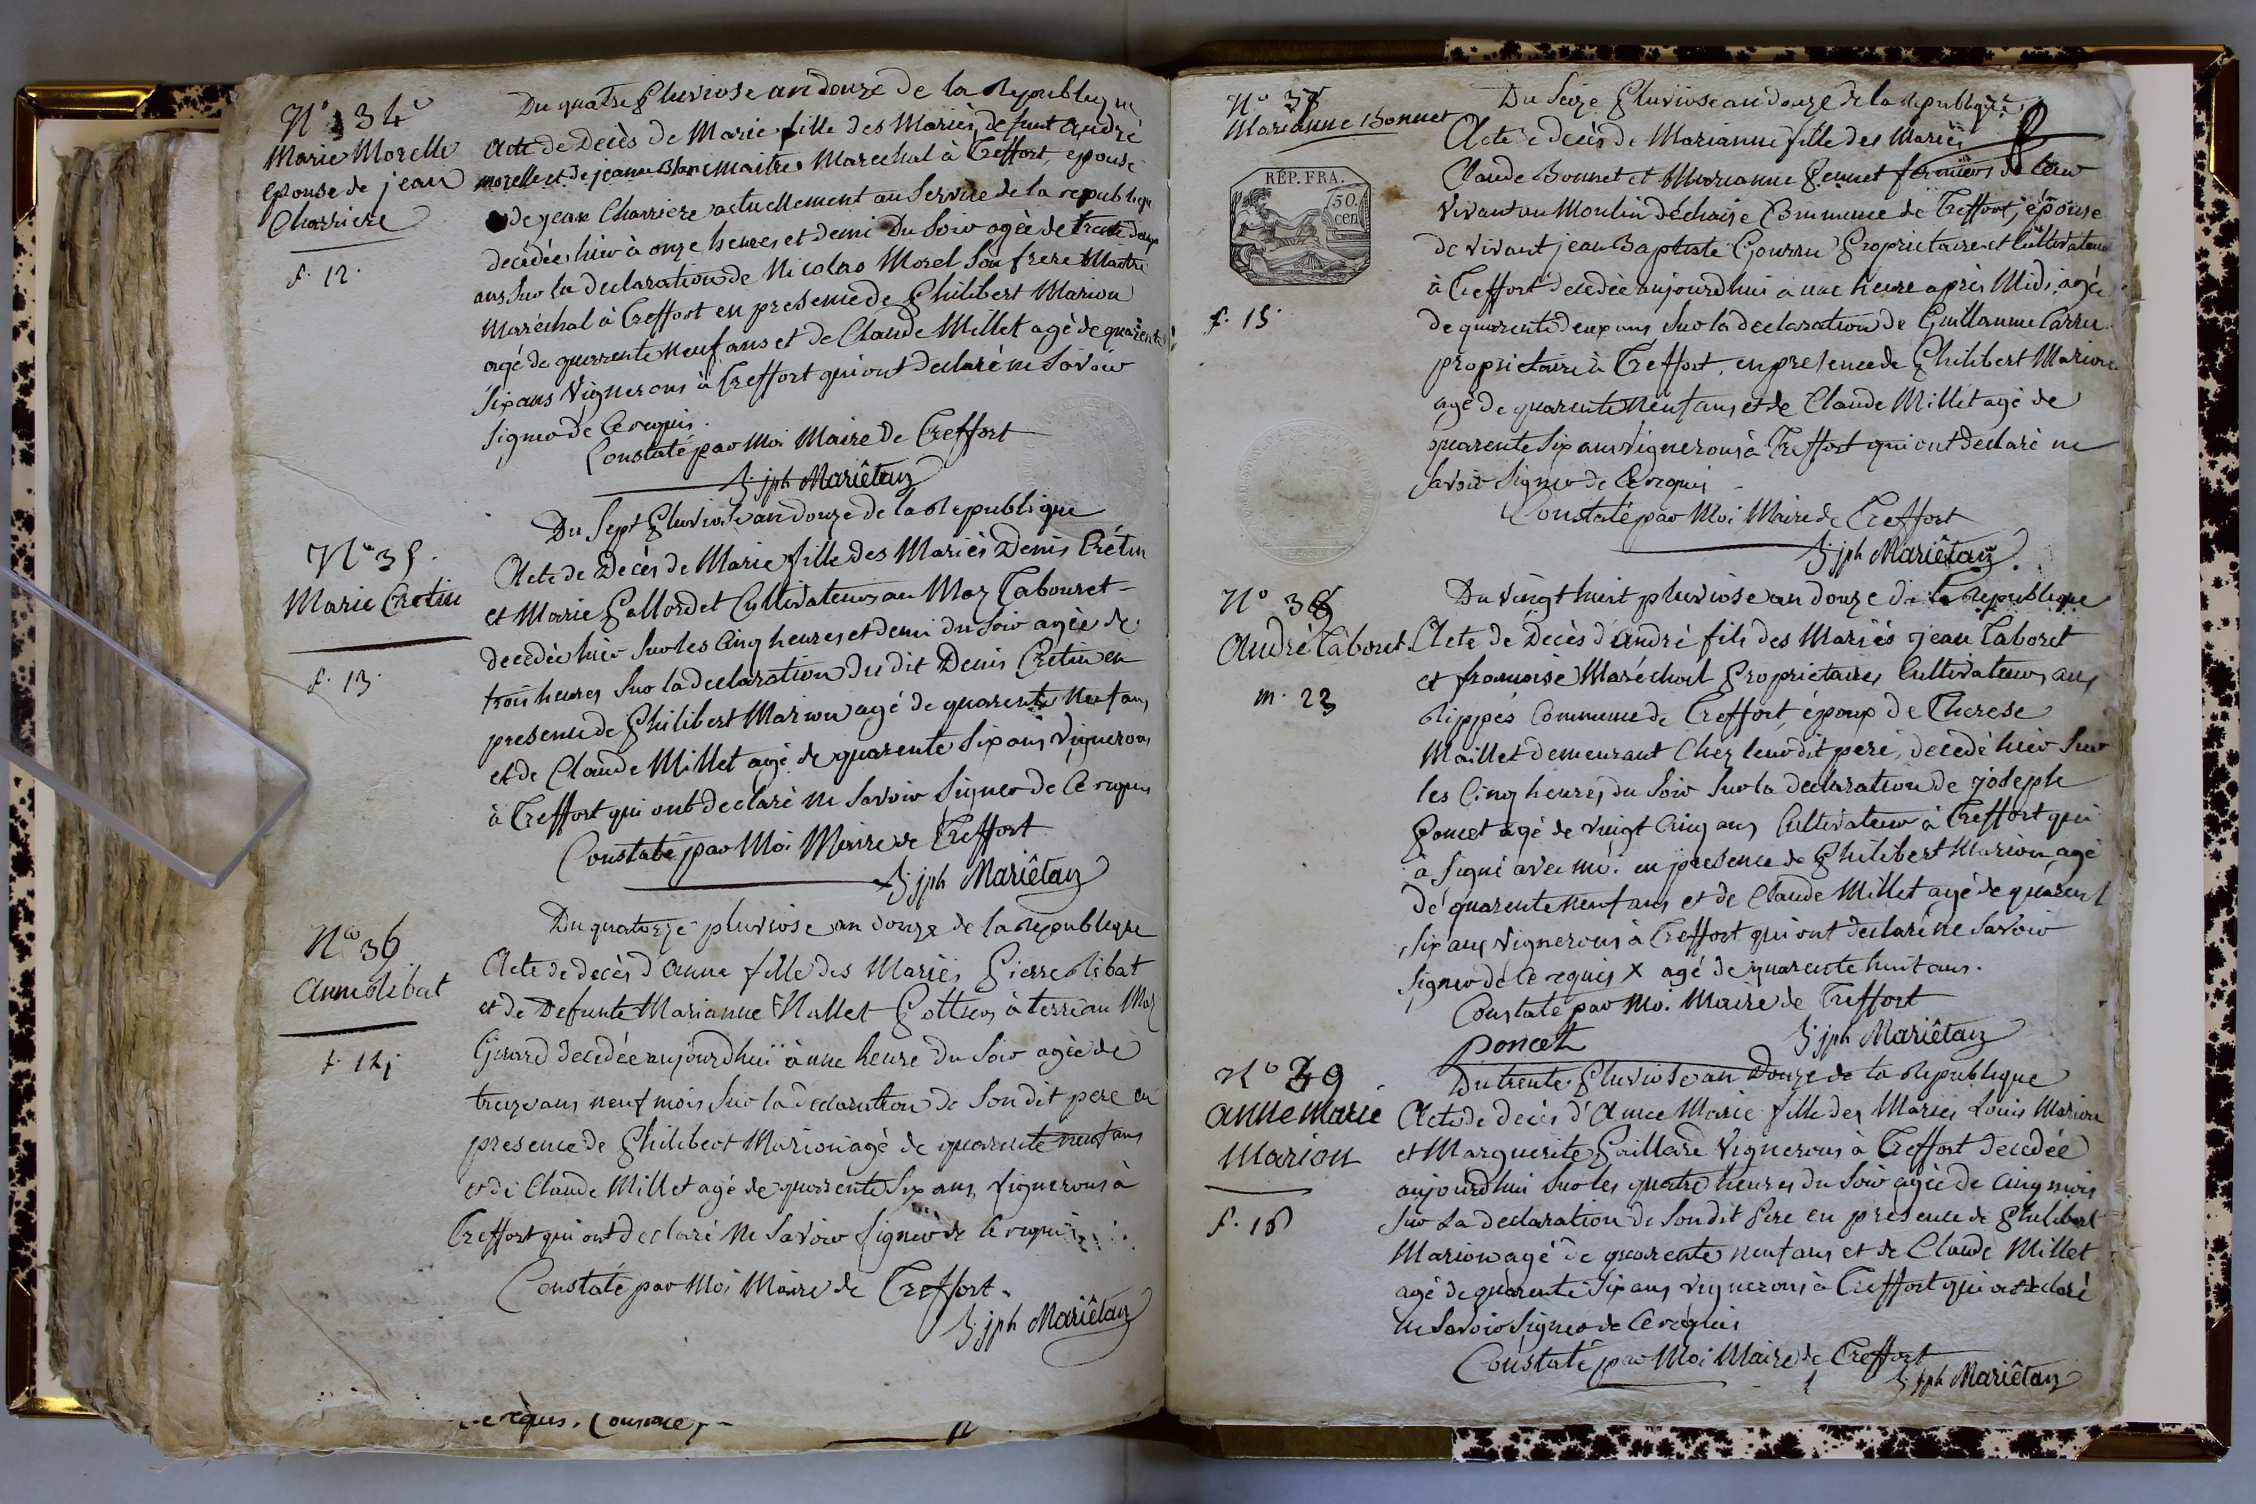 N° 34
Marie Morelle
épouse de jean
Charriere
f. 12.
Du quatre Pluviose an douze de la Republique
Acte de Decès de Marie fille des Mariés defunt André
morelle et de jeanne Blanc maitres Marechal à Treffort, epouse
de jean Charriere actuellement au Service de la republique
decédée hier à onze heures et demi Du Soir agée de trente deux
ans Sur la declaration de Nicolas Morel Son frere Maitre
Maréchal à Treffort en presence de Philibert Marion
agé de quarente neuf ans et de Claude Millet agé de quarente
Six ans Vignerons à Treffort qui ont Declaré ne Savoir
Signer de Ce requis.
Constaté par Moi Maire de Treffort
jph Mariêtan
N° 35.
Marie Cretin
f. 13.
Du Sept Pluviose an douze de la Republique
Acte de Decès de Marie fille des Mariés Denis Crétin
et Marie Gallordet Cultivateurs au Maz Tabouret
decedée hier Sur les Cinq heures et demi du Soir agée de
trois heures Sur la declaration du dit Denis Cretin en
presence de Philibert Marion agé de quarente neuf ans
et de Claude Millet agé de quarente Six ans Vignerons
à Treffort qui ont declaré ne Savoir Signer de Ce requis
Constaté par Moi Maire de Treffort
jph Mariêtan
N° 36
Anne Ribat
f. 14
Du quatorze pluviose an douze de la republique
Acte de decès d'anne fille des Mariés Pierre Ribat
et de Defunte Marianne Mallet Pottiers à terre au Maz
Girard decedée aujourdhui à une heure Du Soir agée de
treize ans neuf mois Sur la declaration de Son dit pere en
presence de Philibert Marion agé de quarente neuf ans
et de Claude Millet agé de quarente Six ans Vignerons à
Treffort qui ont declaré ne Savoir Signer de Ce requis
Constaté par Moi Maire de Treffort.
jph Mariêtan
requis. Constaté
N° 37
Marianne Bonnet
RÉP. FRA.
50.
cen
f. 15.
Du Seize Pluviose an douze de la Republique
Acte de decès de Marianne fille des Mariés
Claude Bonnet et Marianne Pennet fermiers de leur
vivant au Moulin déchaise Commune de Treffort, épouse
de vivant jean Baptiste Gourru Proprietaire et Cultivateur
à Treffort decedée aujourdhui à une heure après Midi, agée
de quarente deux ans Sur la declaration de Guillaume Carru
proprietaire à Treffort, en presence de Philibert Marion
agé de quarente neuf ans et de Claude Millet agé de
quarente Six ans Vignerons à Treffort qui ont declaré ne
Savoir Signer de Ce requis
Constaté par Moi Maire de Treffort
jph Mariêtan
N° 38
André Taboret.
m. 23
Du vingt huit pluviose an douze de la Republique
Acte de Decès d'André fils des Mariés jean Taboret
et françoise Maréchal Proprietaires Cultivateurs aux
Rippes Commune de Treffort, époux de Therese
Maillet demeurant Chez leur dit pere, decedé hier Sur
les Cinq heures du Soir Sur la declaration de joseph
Poncet agé de vingt Cinq ans Cultivateur à Treffort qui
à Signé avec moi en presence de Philibert Marion agé
de quarente neuf ans et de Claude Millet agé de quarente
Six ans Vignerons à Treffort qui ont declaré ne Savoir
Signer de Ce requis X agé de quarente huit ans.
Constaté par Moi Maire de Treffort
poncet
jph Mariêtan
N° 39
anne Marie
Marion
f. 16
Du trente Pluviose an Douze de la Republique
Acte de decès d'Anne Marie fille des Mariés Louis Marion
et Marguerite Gaillard Vignerons à Treffort decedée
aujourdhui Sur les quatre heures du Soir agée de Cinq mois
Sur la declaration de Son dit Pere en presence de Philibert
Marion agé de quarente neuf ans et de Claude Millet
agé de quarente Six ans vignerons à Treffort qui ont declaré
ne Savoir Signer de Ce requis
Constaté par Moi Maire de Treffort
jph Mariêtan